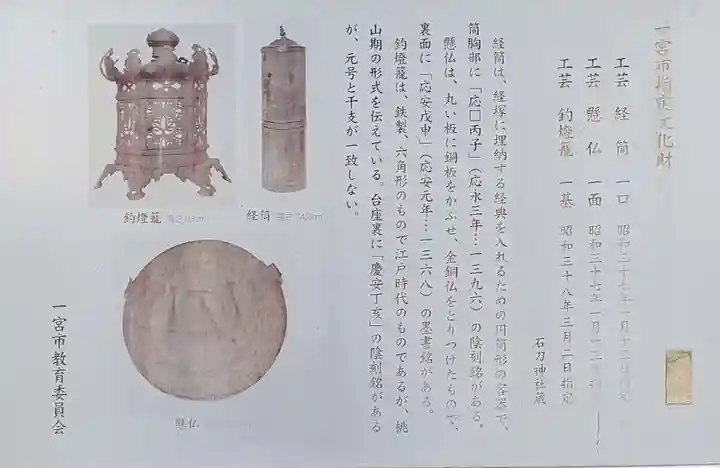 一宮市指定文化財
工芸 経筒 一口 昭和三十七年一月十二日
工芸 懸仏 一面 昭和三十七年一月十二日
工芸 釣燈籠 一基 昭和三十八年三月二日指定
石刀神社蔵
経筒は、経塚に埋納する経典を入れるための円筒形の容器で、
筒胸部に「応□丙子」(応永三年…一三九六)の陰刻銘がある。
懸仏は、丸い板に銅板をかぶせ、金銅仏をとりつけたもので、
裏面に「応安戊申」(応安元年…一三六八)の墨書銘がある。
釣燈籠は、鉄製、六角形のもので江戸時代のものであるが、桃
山期の形式を伝えている。台座裏に「慶安丁亥」の陰刻銘がある
が、元号と干支が一致しない。
釣燈籠
経筒
懸仏
一宮市教育委員会